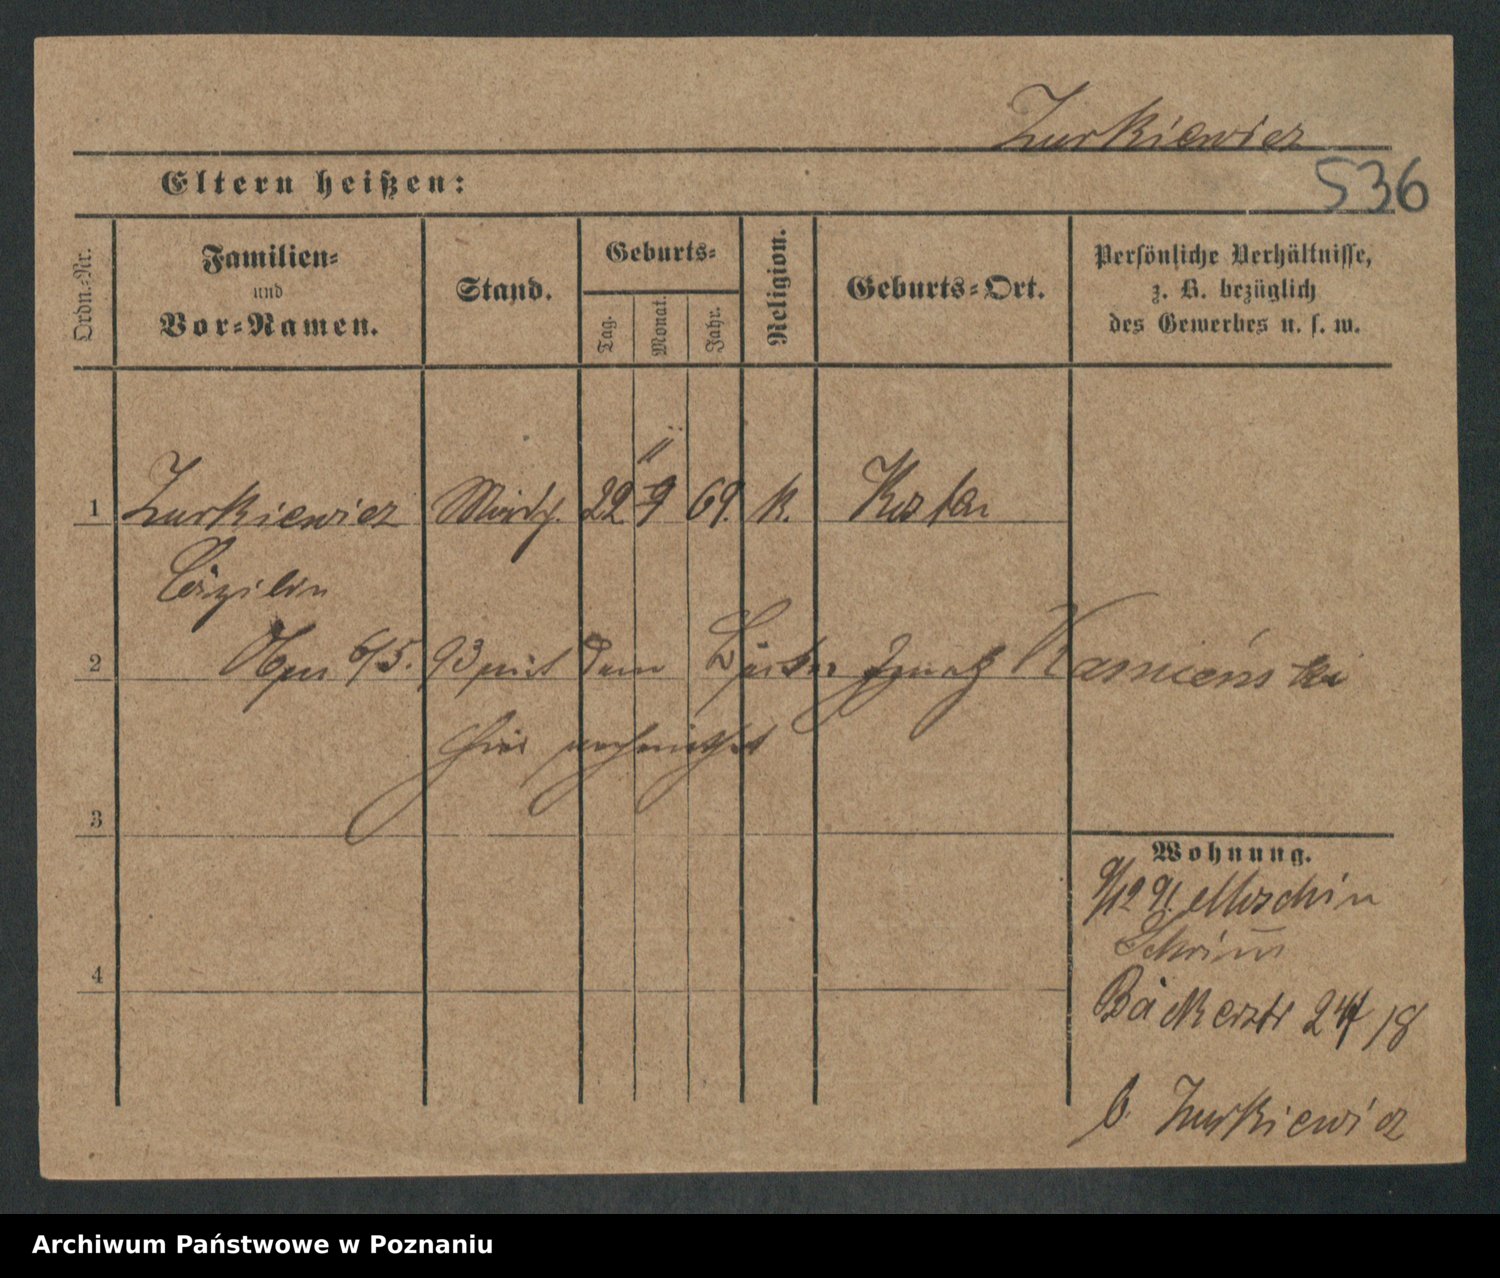 Zurkiewicz
536
Eltern heißen:
Ordn.-Nr.
Familien-
und
Vor-Namen.
Stand.
Geburts-
Tag.
Monat.
Jahr.
Religion.
Geburts-Ort.
Persönliche Verhältnisse,
z. B. bezüglich
des Gewerbes u. s. w.
1 Zurkiewicz 22. 9 69. k.
11
Cäzilia
2 6/5. 93 mit dem Ignatz Kamieński
hier verheirathet
3
Wohnung.
9/12 91. Moschin
Schrimm
4
Bäckerstr 24 18
b. Zurkiewicz
Archiwum Państwowe w Poznaniu